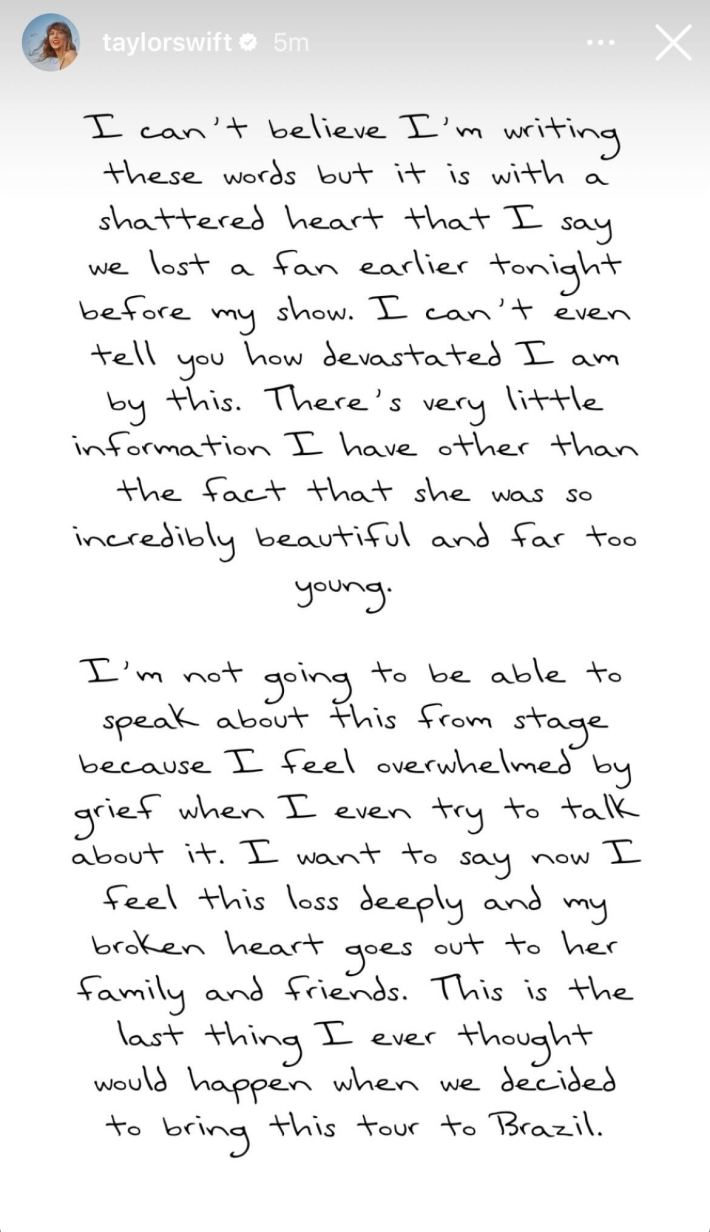 taylorswift 5m
I can't believe I'm writing
these words but it is with a
shattered heart that I say
we lost a fan earlier tonight
before my show. I can't even
tell you how devastated I am
by this. There's very little
information I have other than
the fact that she was so
incredibly beautiful and far too
young.
I'm not going to be able to
speak about this from stage
because I feel overwhelmed by
grief when I even try to talk
about it. I want to say now I
feel this loss deeply and my
broken heart goes out to her
family and friends. This is the
last thing I ever thought
would happen when we decided
to bring this tour to Brazil.